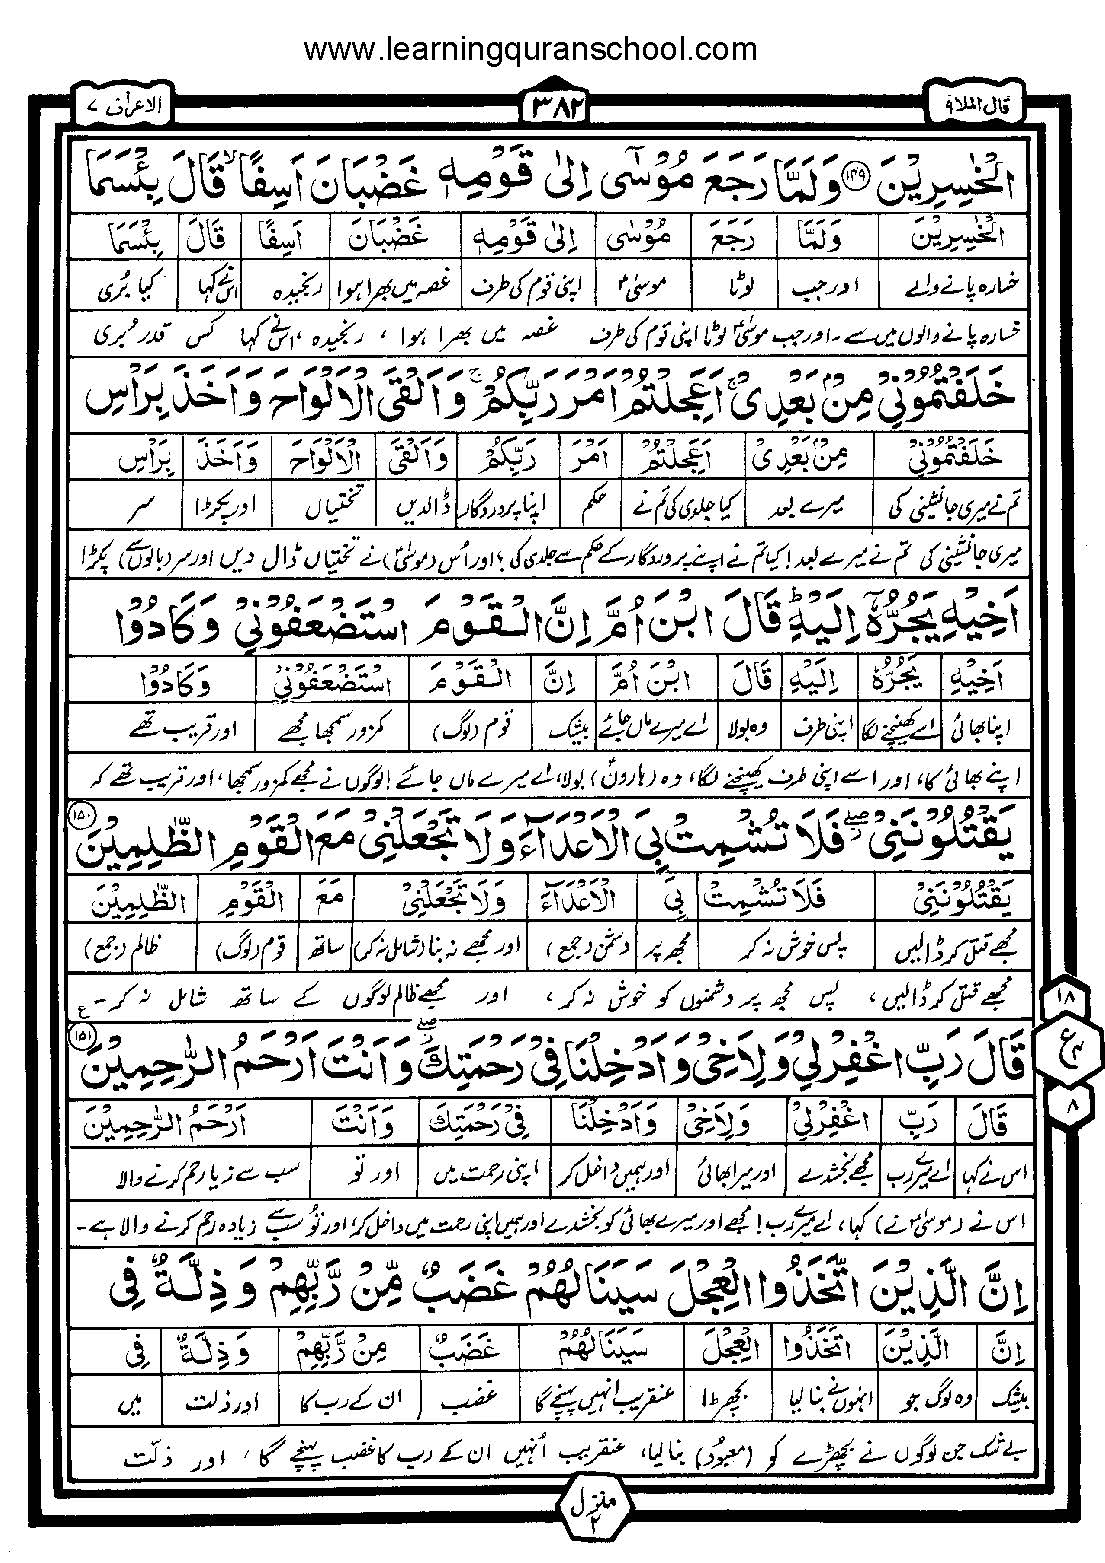 www.learningquranschool.com
قال الملا ۹ ۳۸۲ الاعراف ۷
الْخٰسِرِيْنَ ۱۴۹ وَلَمَّا رَجَعَ مُوْسٰۤى اِلٰى قَوْمِهٖ غَضْبَانَ اَسِفًا ۙ قَالَ بِئْسَمَا
الْخٰسِرِيْنَ وَلَمَّا رَجَعَ مُوْسٰى اِلٰى قَوْمِهٖ غَضْبَانَ اَسِفًا قَالَ بِئْسَمَا
خسارہ پانے والے اور جب لوٹا موسیٰؑ اپنی قوم کی طرف غصہ میں بھرا ہوا رنجیدہ اس نے کہا کیا بُری
خسارہ پانے والوں میں سے۔ اور جب موسیٰؑ لوٹا اپنی قوم کی طرف غصہ میں بھرا ہوا، رنجیدہ، اس نے کہا کس قدر بُری
خَلَفْتُمُوْنِيْ مِنْۢ بَعْدِيْ ۚ اَعَجِلْتُمْ اَمْرَ رَبِّكُمْ ۚ وَاَلْقَى الْاَلْوَاحَ وَاَخَذَ بِرَاْسِ
خَلَفْتُمُوْنِيْ مِنْۢ بَعْدِيْ اَعَجِلْتُمْ اَمْرَ رَبِّكُمْ وَاَلْقَى الْاَلْوَاحَ وَاَخَذَ بِرَاْسِ
تم نے میری جانشینی کی میرے بعد کیا جلدی کی تم نے حکم اپنا پروردگار ڈالدیں تختیاں اور پکڑا سر
میری جانشینی کی تم نے میرے بعد! کیا تم نے اپنے پروردگار کے حکم سے جلدی کی؟ اور اُس (موسیٰؑ) نے تختیاں ڈال دیں اور سر (بالوں سے) پکڑا
اَخِيْهِ يَجُرُّهٗۤ اِلَيْهِ ؕ قَالَ ابْنَ اُمَّ اِنَّ الْقَوْمَ اسْتَضْعَفُوْنِيْ وَكَادُوْا
اَخِيْهِ يَجُرُّهٗ اِلَيْهِ قَالَ ابْنَ اُمَّ اِنَّ الْقَوْمَ اسْتَضْعَفُوْنِيْ وَكَادُوْا
اپنا بھائی اسے کھینچنے لگا اپنی طرف وہ بولا اے میرے ماں جائے بیشک قوم (لوگ) کمزور سمجھا مجھے اور قریب تھے
اپنے بھائی کا، اور اسے اپنی طرف کھینچنے لگا، وہ (ہارونؑ) بولا، اے میرے ماں جائے! لوگوں نے مجھے کمزور سمجھا، اور قریب تھے کہ
يَقْتُلُوْنَنِيْ ۖ فَلَا تُشْمِتْ بِيَ الْاَعْدَآءَ وَلَا تَجْعَلْنِيْ مَعَ الْقَوْمِ الظّٰلِمِيْنَ ۱۵۰
يَقْتُلُوْنَنِيْ فَلَا تُشْمِتْ بِيَ الْاَعْدَآءَ وَلَا تَجْعَلْنِيْ مَعَ الْقَوْمِ الظّٰلِمِيْنَ
مجھے قتل کر ڈالیں پس خوش نہ کر مجھ پر دشمن (جمع) اور مجھے نہ بنا (شامل نہ کر) ساتھ قوم (لوگ) ظالم (جمع)
مجھے قتل کر ڈالیں، پس مجھ پر دشمنوں کو خوش نہ کر، اور مجھے ظالم لوگوں کے ساتھ شامل نہ کر۔ ع
۱۸
ع ۴
۸
قَالَ رَبِّ اغْفِرْلِيْ وَلِاَخِيْ وَاَدْخِلْنَا فِيْ رَحْمَتِكَ ۖ وَاَنْتَ اَرْحَمُ الرّٰحِمِيْنَ ۱۵۱
قَالَ رَبِّ اغْفِرْلِيْ وَلِاَخِيْ وَاَدْخِلْنَا فِيْ رَحْمَتِكَ وَاَنْتَ اَرْحَمُ الرّٰحِمِيْنَ
اس نے کہا اے میرے رب مجھے بخشدے اور میرا بھائی اور ہمیں داخل کر اپنی رحمت میں اور تو سب سے زیادہ رحم کرنے والا
اس نے (موسیٰؑ نے) کہا، اے میرے رب! مجھے اور میرے بھائی کو بخشدے اور ہمیں اپنی رحمت میں داخل کر، اور تُو سب سے زیادہ رحم کرنے والا ہے۔
اِنَّ الَّذِيْنَ اتَّخَذُوا الْعِجْلَ سَيَنَالُهُمْ غَضَبٌ مِّنْ رَّبِّهِمْ وَذِلَّةٌ فِى
اِنَّ الَّذِيْنَ اتَّخَذُوا الْعِجْلَ سَيَنَالُهُمْ غَضَبٌ مِنْ رَّبِّهِمْ وَذِلَّةٌ فِى
بیشک وہ لوگ جو انہوں نے بنا لیا بچھڑا عنقریب انہیں پہنچے گا غضب ان کے رب کا اور ذلت میں
بے شک جن لوگوں نے بچھڑے کو (معبود) بنا لیا، عنقریب اُنہیں ان کے رب کا غضب پہنچے گا، اور ذلّت
منزل ۲